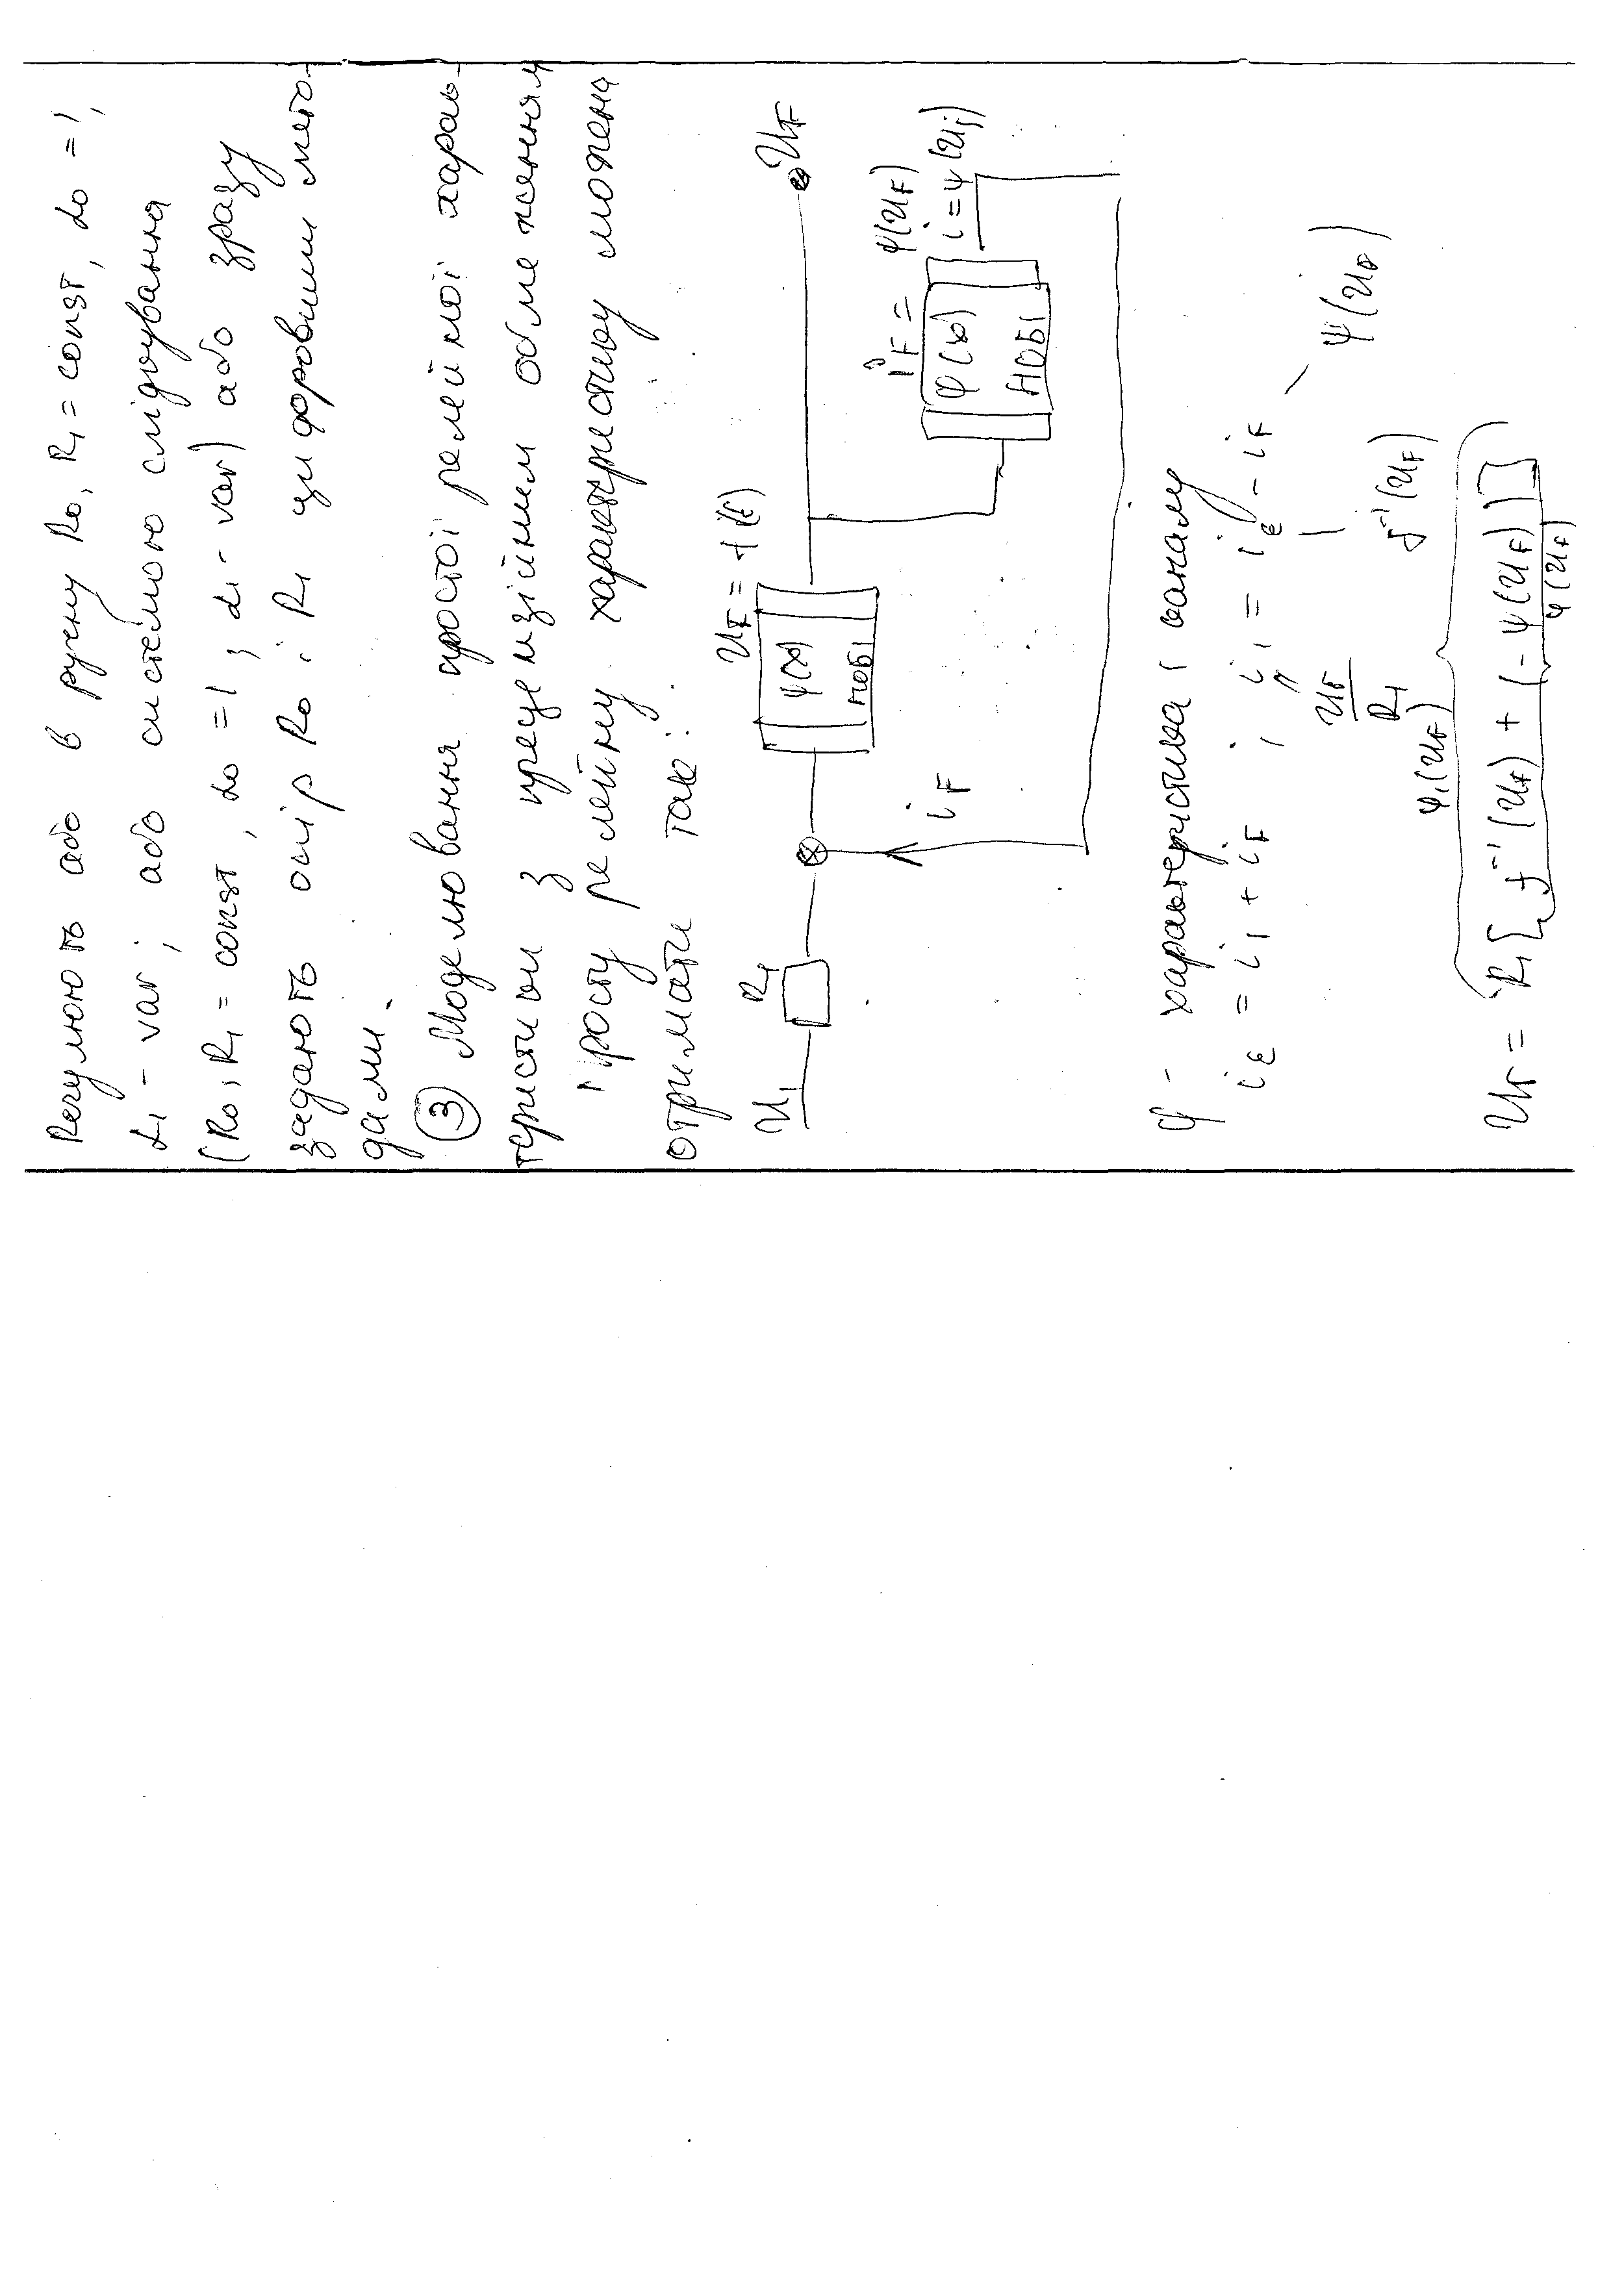 Регулюють або в ручну R₀, R₁ = const, α₀ = 1,
α₁ - var; або системою слідкування
(R₀, R₁ = const, α₀ = 1, α₁ - var) або зразу
задають опір R₀ і R₁ цифровими мето-
дами.
③ Моделювання простої релейної харак-
теристики з прецизійним обмеженням
Просту релейну характеристику можна
отримати так:
U₁ R₁ φ(x) НОБ1 U_F
i_F = ψ(U_F)
i = ψ(U_j)
ψ(x) НОБ1
i_F
φ - характеристика 1 каналу
i_ε = i₁ + i_F ; i₁ = i_ε - i_F
U_F / R₁ f⁻¹(U_F) ψ(U_F)
φ₁(U_F)
U_F = R₁ [ f⁻¹(U_F) + (-ψ(U_F)) ]
ψ(U_F)